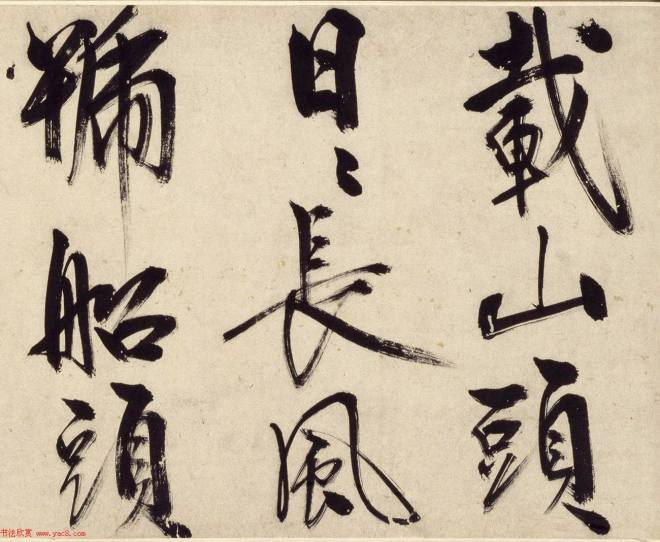 載山頭
日〻長風
船頭
书法欣赏 www.yac8.com